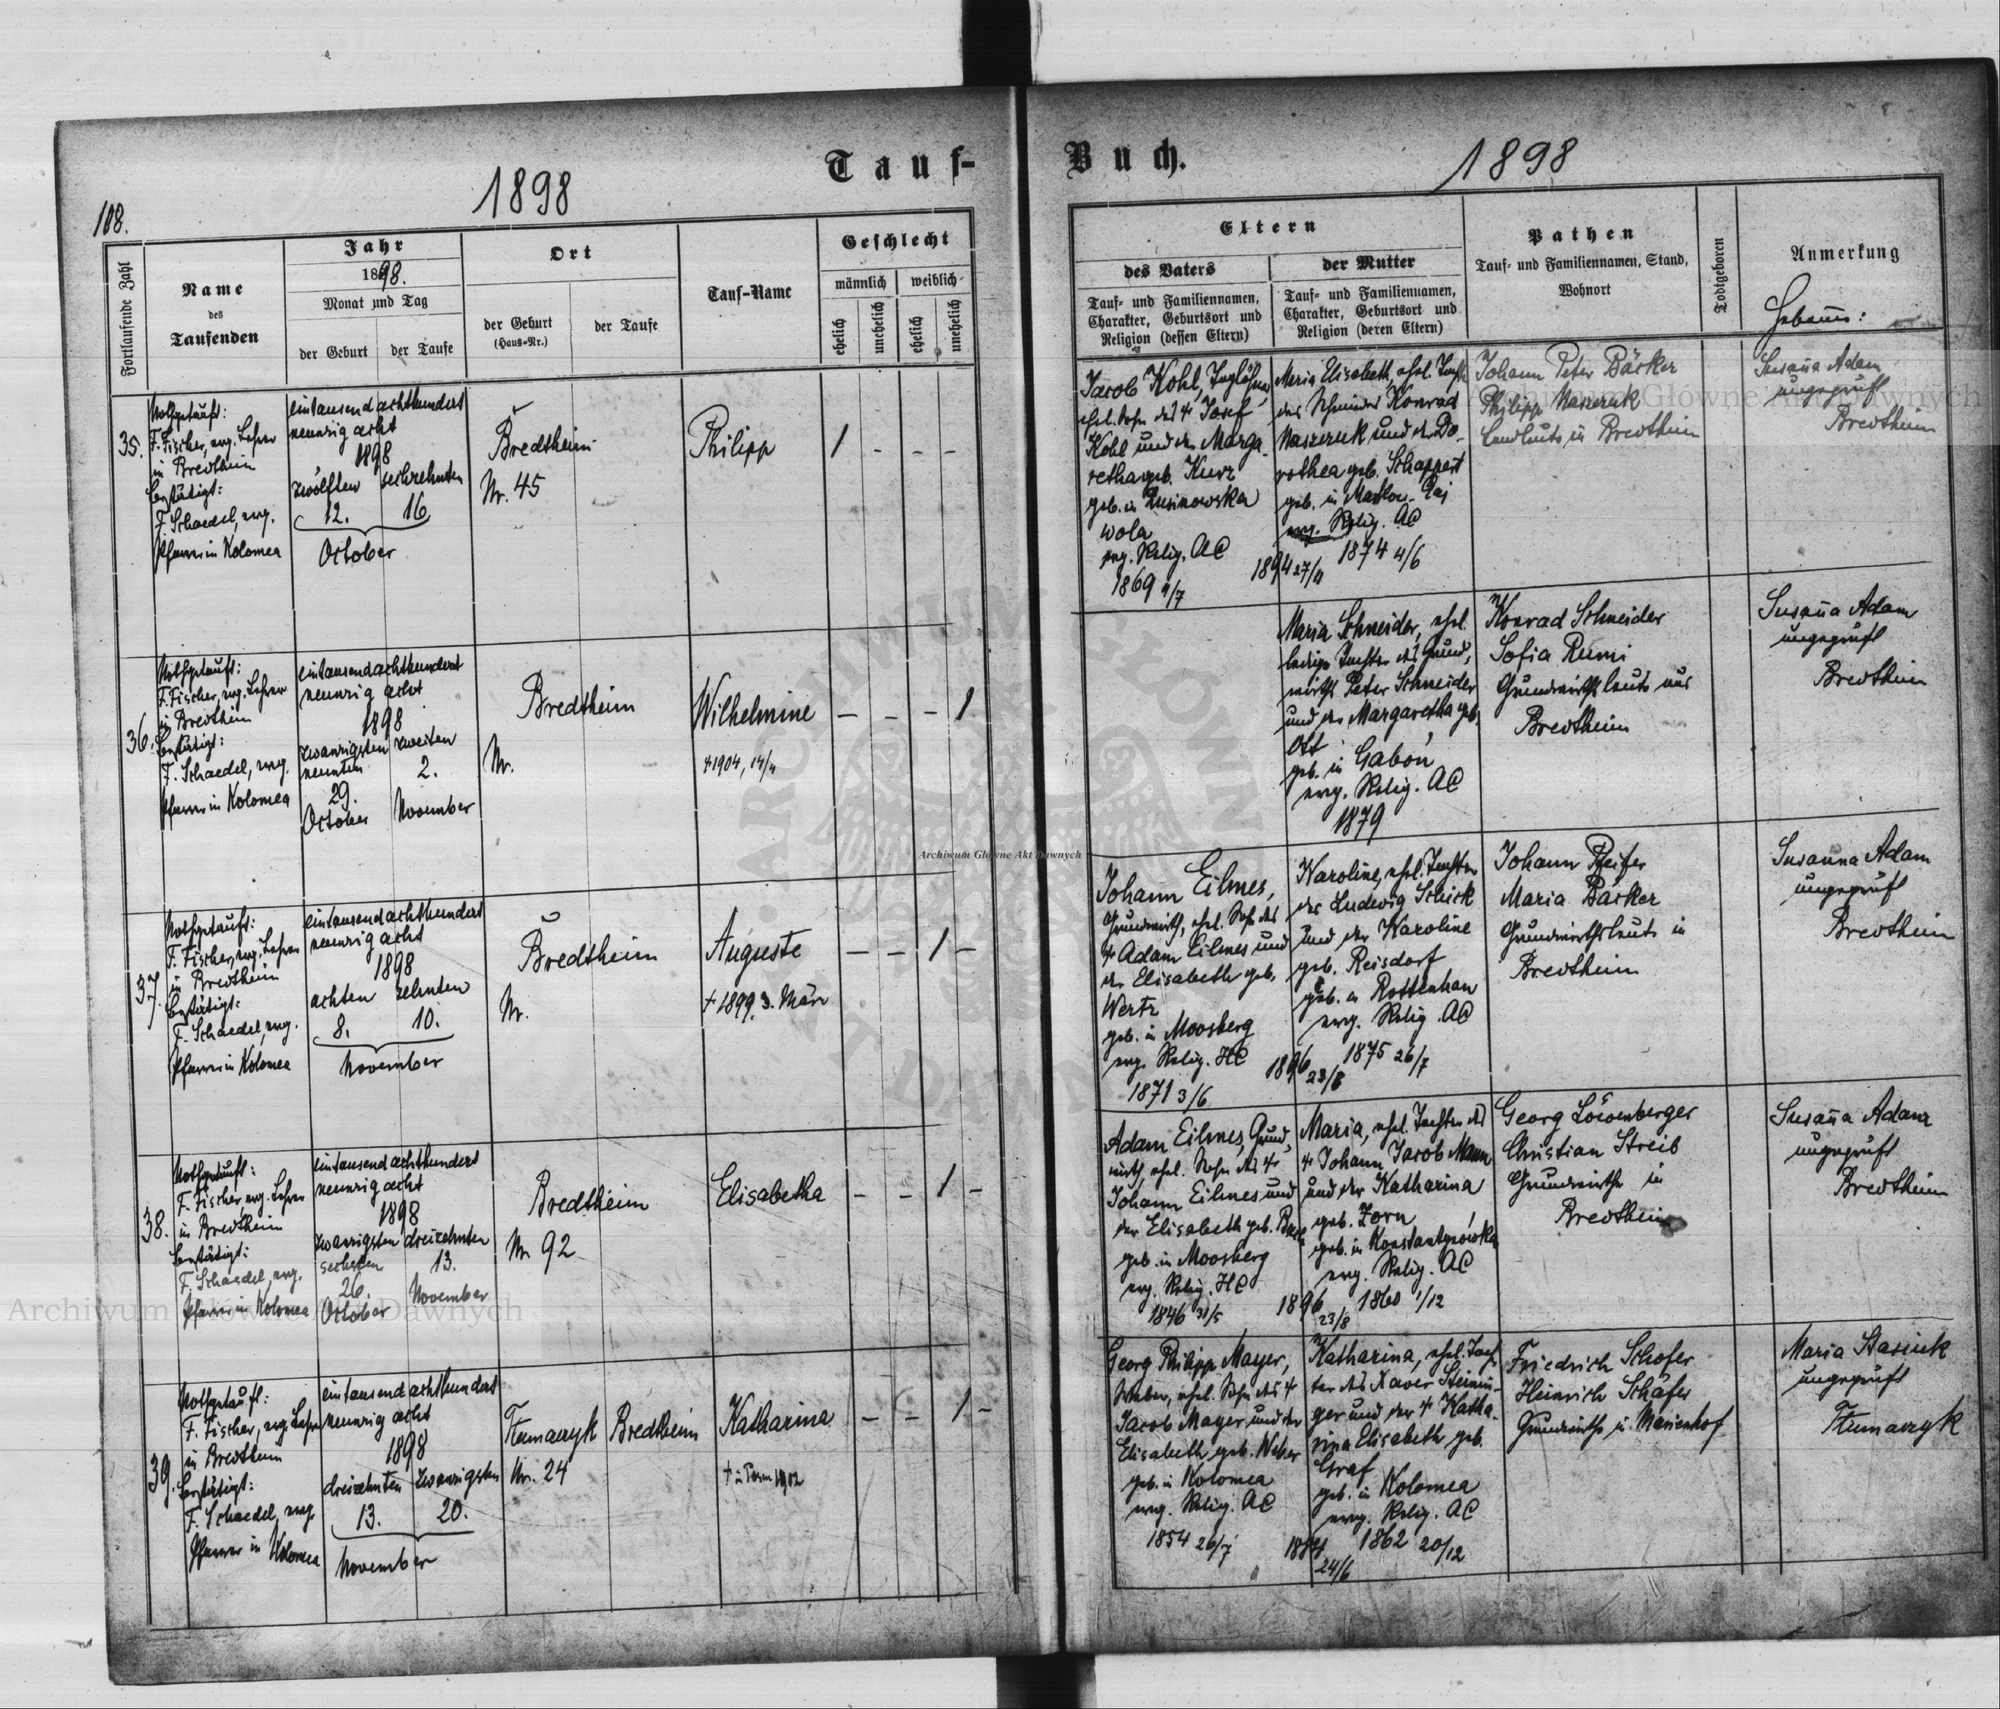 108.
1898
Tauf-
Fortlaufende Zahl
Name
des
Taufenden
Jahr
1898.
Monat und Tag
der Geburt
der Taufe
Ort
der Geburt
(Haus-Nr.)
der Taufe
Tauf-Name
Geschlecht
männlich
weiblich
ehelich
unehelich
ehelich
unehelich
35.
Nothgetauft:
F. Fischer, evg. Lehrer
in Bredtheim
bestätigt:
F. Schaedel, evg.
Pfarrer in Kolomea
eintausendachthundert
neunzig acht
1898
zwölften sechzehnten
12. 16
October
Bredtheim
Nr. 45
Philipp
1 - - -
36.
Nothgetauft:
F. Fischer, evg. Lehrer
in Bredtheim
bestätigt:
F. Schaedel, evg.
Pfarrer in Kolomea
eintausendachthundert
neunzig acht
1898
zwanzigsten zweiten
neunten 2.
29.
October November
Bredtheim
Nr.
Wilhelmine
+ 1904, 14/4
- - - 1
37.
Nothgetauft:
F. Fischer, evg. Lehrer
in Bredtheim
bestätigt:
F. Schaedel, evg.
Pfarrer in Kolomea
eintausendachthundert
neunzig acht
1898
achten zehnten
8. 10.
November
Bredtheim
Nr.
Auguste
+ 1899, 3. März
- - 1 -
38.
Nothgetauft:
F. Fischer, evg. Lehrer
in Bredtheim
bestätigt:
F. Schaedel, evg.
Pfarrer in Kolomea
eintausendachthundert
neunzig acht
1898
zwanzigsten dreizehnten
sechsten 13.
26.
October November
Bredtheim
Nr. 92
Elisabetha
- - 1 -
39.
Nothgetauft:
F. Fischer, evg. Lehrer
in Bredtheim
bestätigt:
F. Schaedel, evg.
Pfarrer in Kolomea
eintausendachthundert
neunzig acht
1898
dreizehnten zwanzigsten
13. 20.
November
Tłumaczyk Bredtheim
Nr. 24
Katharina
1902
- - 1 -
Buch.
1898
Eltern
des Vaters
Tauf- und Familiennamen,
Charakter, Geburtsort und
Religion (dessen Eltern)
der Mutter
Tauf- und Familiennamen,
Charakter, Geburtsort und
Religion (deren Eltern)
Pathen
Tauf- und Familiennamen, Stand,
Wohnort
Todtgeboren
Anmerkung
Hebamme:
Jacob Kohl, Taglöhner,
ehel. Sohn des + Josef
Kohl und der Marga-
retha geb. Kurz
geb. in
wola
evg. Relig. AC
1869 4/7
Maria Elisabeth, ehel. Tochter
des Schmiedes Konrad
Naszeruk und der Do-
rothea geb. Schappert
geb. in
evg. Relig. AC
1894 27/4 1874 4/6
Johann Peter Bäcker
Philipp Naszeruk
Landleute in Bredtheim
Susanna Adam
ungeprüft
Bredtheim
Maria Schneider, ehel.
ledige Tochter des Grund-
wirths Peter Schneider
und der Margaretha geb.
Ott
geb. in Gabon
evg. Relig. AC
1879
Konrad Schneider
Sofia Rumi
Grundwirthsleute aus
Bredtheim
Susanna Adam
ungeprüft
Bredtheim
Johann Eilmes,
Grundwirth, ehel. Sohn des
+ Adam Eilmes und
der Elisabeth geb.
Wertz
geb. in Moosberg
evg. Relig. HC
1871 3/6
Karoline, ehel. Tochter
des Ludwig Schick
und der Karoline
geb. Reisdorf
geb. in Rottenhan
evg. Relig. AC
1896 23/8 1875 26/7
Johann Pfeifer
Maria Bäcker
Grundwirthsleute in
Bredtheim
Susanna Adam
ungeprüft
Bredtheim
Adam Eilmes, Grund-
wirth, ehel. Sohn des +
Johann Eilmes und
der Elisabeth geb.
geb. in Moosberg
evg. Relig. HC
1846 31/5
Maria, ehel. Tochter des
+ Johann Jacob Mann
und der Katharina
geb. Zorn
geb. in Konstantynówka
evg. Relig. AC
1896 23/8 1860 1/12
Georg Löwenberger
Christian Streib
Grundwirthe in
Bredtheim
Susanna Adam
ungeprüft
Bredtheim
Georg Philipp Mayer,
Weber, ehel. Sohn des +
Jacob Mayer und der
Elisabeth geb. Weber
geb. in Kolomea
evg. Relig. AC
1854 26/7
Katharina, ehel. Toch-
ter des Xaver Stemin-
ger und der + Katha-
rina Elisabeth geb.
Graf
geb. in Kolomea
evg. Relig. AC
24/6 1862 20/12
Friedrich Schäfer
Heinrich Schäfer
Grundwirthe in Marienhof
Maria Stasiuk
ungeprüft
Tłumaczyk
Archiwum Główne Akt Dawnych